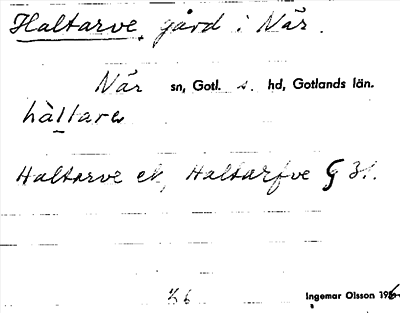 Haltarve, gård i När.
När sn, Gotl. s. hd, Gotlands län.
hàltarvs
Haltarve ek, Haltarfve G 31.
Ingemar Olsson 196